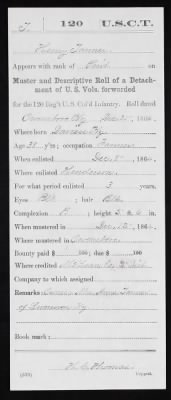 T. 120 U.S.C.T.
Henry Tanner
Appears with rank of Pvt. on
Muster and Descriptive Roll of a Detach-
ment of U. S. Vols. forwarded
for the 120 Reg't U.S. Col'd Infantry. Roll dated
Owensboro Ky Dec 25, 186
Where born Ky.
Age 38 y'rs; occupation Farmer
When enlisted Dec 8, 186
Where enlisted Henderson
For what period enlisted 3 years.
Eyes Blk; hair Blk
Complexion B; height 5 ft. 6 in.
When mustered in Dec. 15, 186
Where mustered in Owensboro
Bounty paid $ 100; due $ 100
Where credited McLean Co.
To which company assigned
Remarks: Owner Mrs. Tanner
of Ky
Book mark:
(339) Copyist.